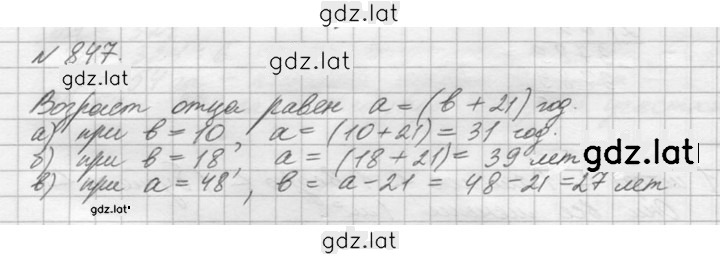 gdz.lat
№ 847.
gdz.lat
gdz.lat
Возраст отца равен a = (b + 21) год.
а) при b = 10, a = (10 + 21) = 31 год.
б) при b = 18, a = (18 + 21) = 39 лет
gdz.lat
в) при a = 48, b = a - 21 = 48 - 21 = 27 лет
gdz.lat
gdz.lat